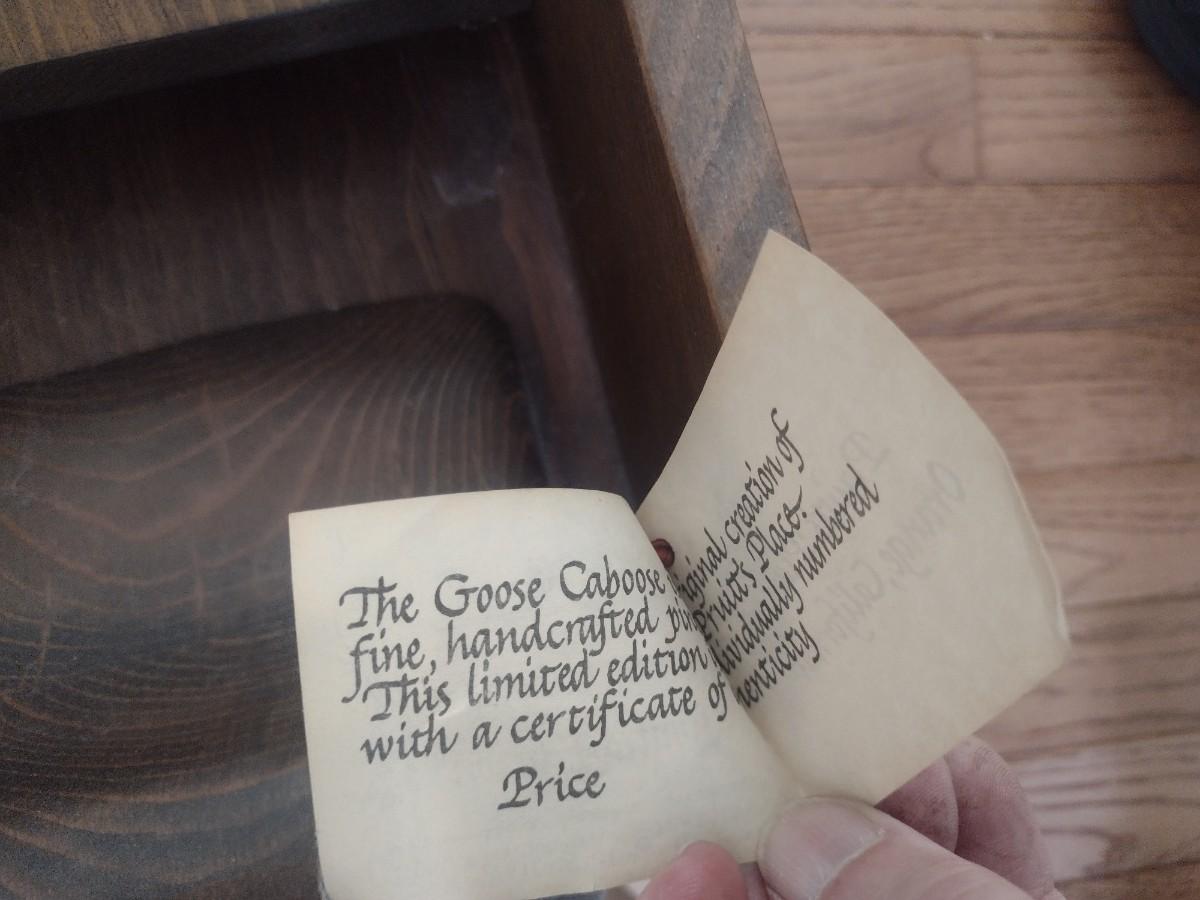 The Goose Caboose original creation of
fine, handcrafted Pruitt's Place.
This limited edition individually numbered
with a certificate of authenticity
Price
Orange, Calif